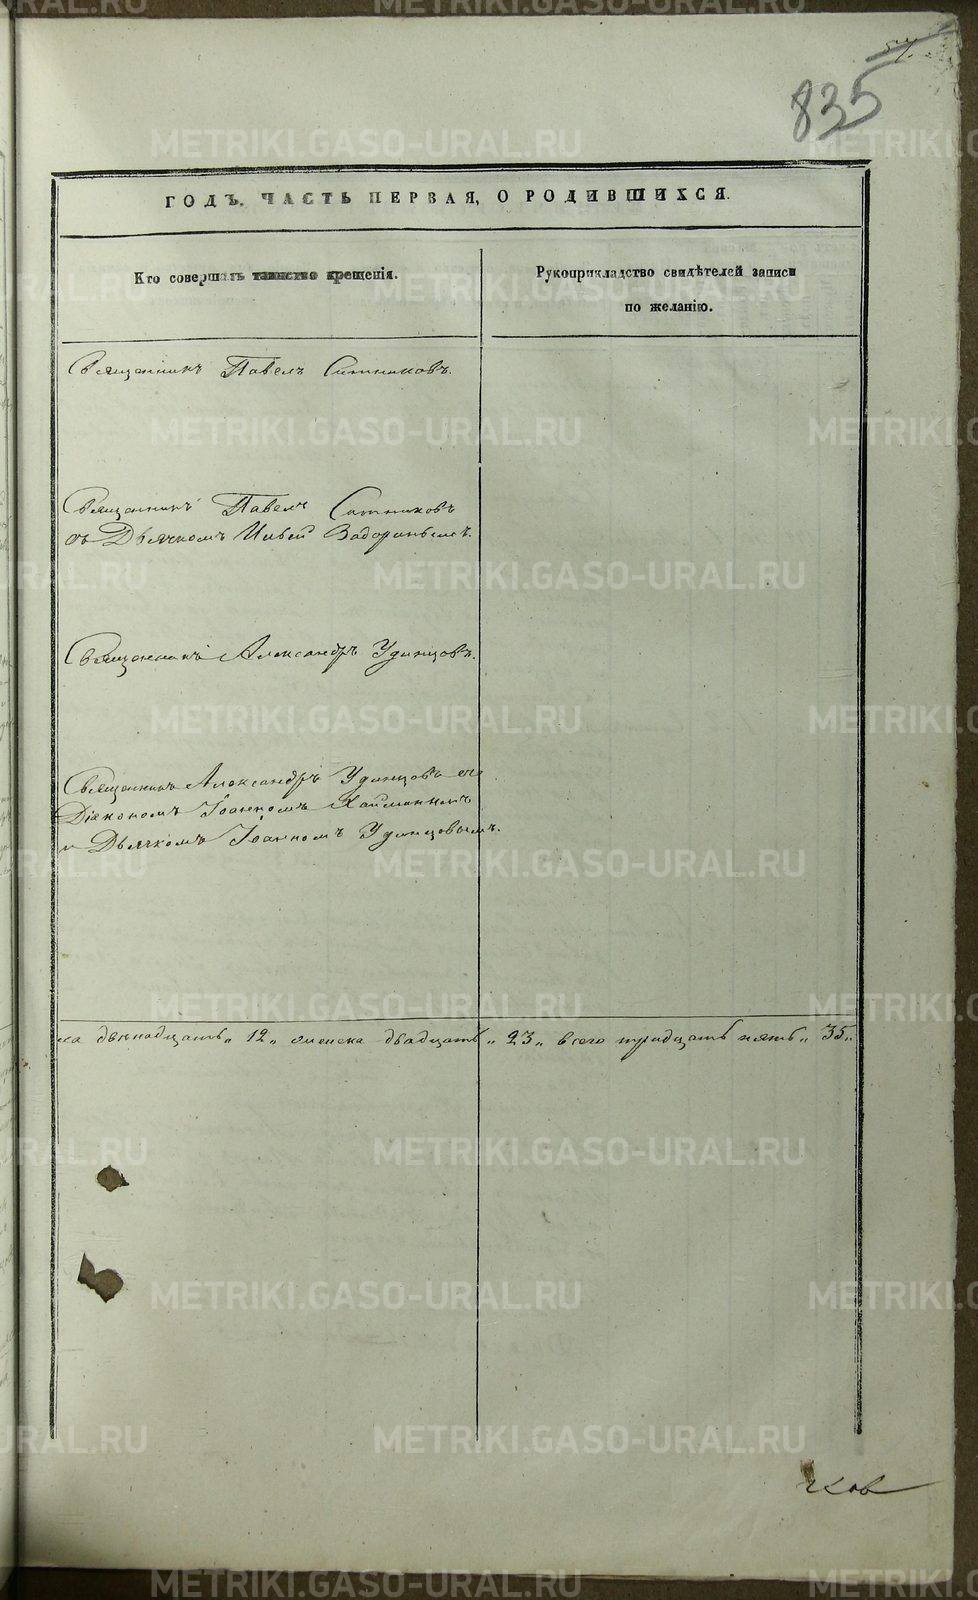 835
ГОДЪ. ЧАСТЬ ПЕРВАЯ, О РОДИВШИХСЯ.
Кто совершалъ таинство крещенія.
Рукоприкладство свидѣтелей записи
по желанію.
Священникъ Павелъ Ситниковъ.
Священникъ Павелъ Ситниковъ
съ Дьячкомъ Ильей Задоринымъ.
Священникъ Александръ Удинцовъ.
Священникъ Александръ Удинцовъ съ
Діакономъ Іоанномъ
и Дьячкомъ Іоанномъ Удинцовымъ.
ка двѣнадцать „ 12 „ женска двадцать „ 23 „ всего тридцать пять „ 35 „
METRIKI.GASO-URAL.RU